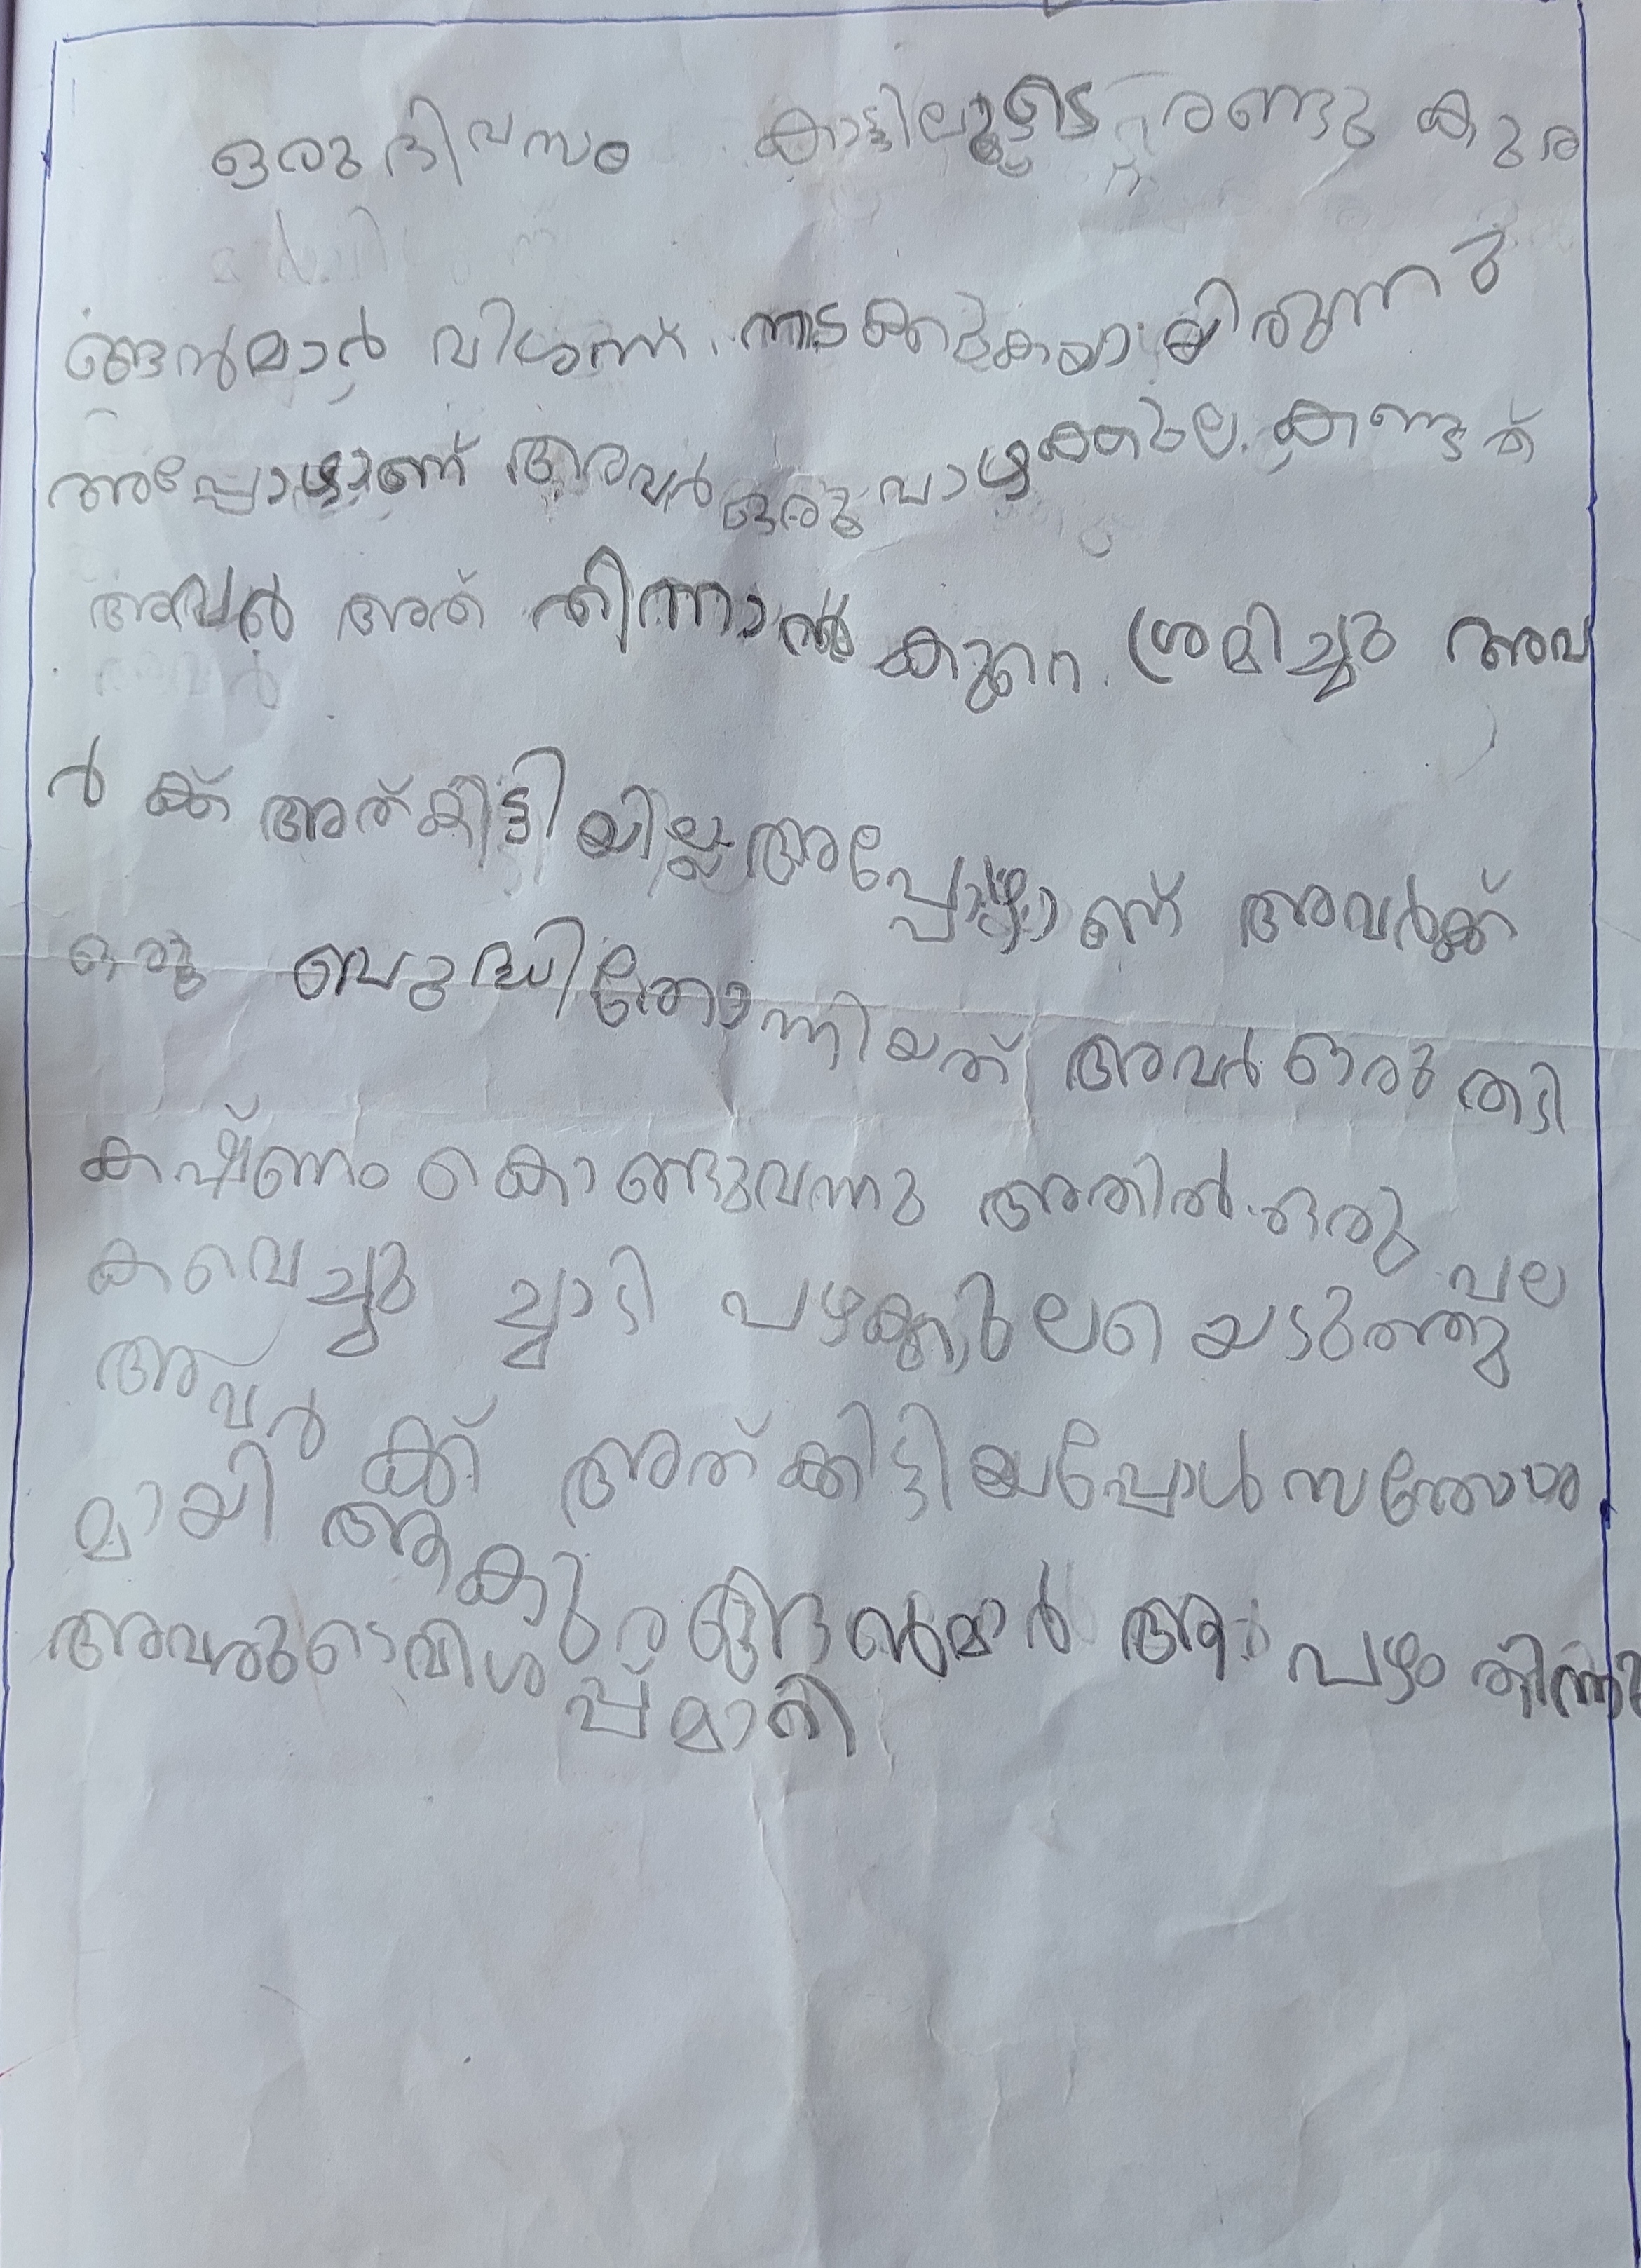 ഒരു ദിവസം കാട്ടിലൂടെ രണ്ടു കുര
ങ്ങൻമാർ വിശന്ന് നടക്കുകയായിരുന്നു
അപ്പോഴാണ് അവർ ഒരു പാഴക്കുല കണ്ടത്
അവർ അത് തിന്നാൻ കുറെ ശ്രമിച്ചു അവ
ർ ക്ക് അത് കിട്ടിയില്ല അപ്പോഴാണ് അവർക്ക്
ഒരു ബുദ്ധി തോന്നിയത് അവർ ഒരു തടി
കഷ്ണം കൊണ്ടുവന്നു അതിൽ ഒരു പല
ക വെച്ചു ച്ചാടി പഴക്കുലയെടുത്തു
അവർക്ക് അത് കിട്ടിയപ്പോൾ സന്തോശ
മായി ആ കുരങ്ങൻമാർ ആ പഴം തിന്നു
അവരുടെ വിശപ്പ് മാറി